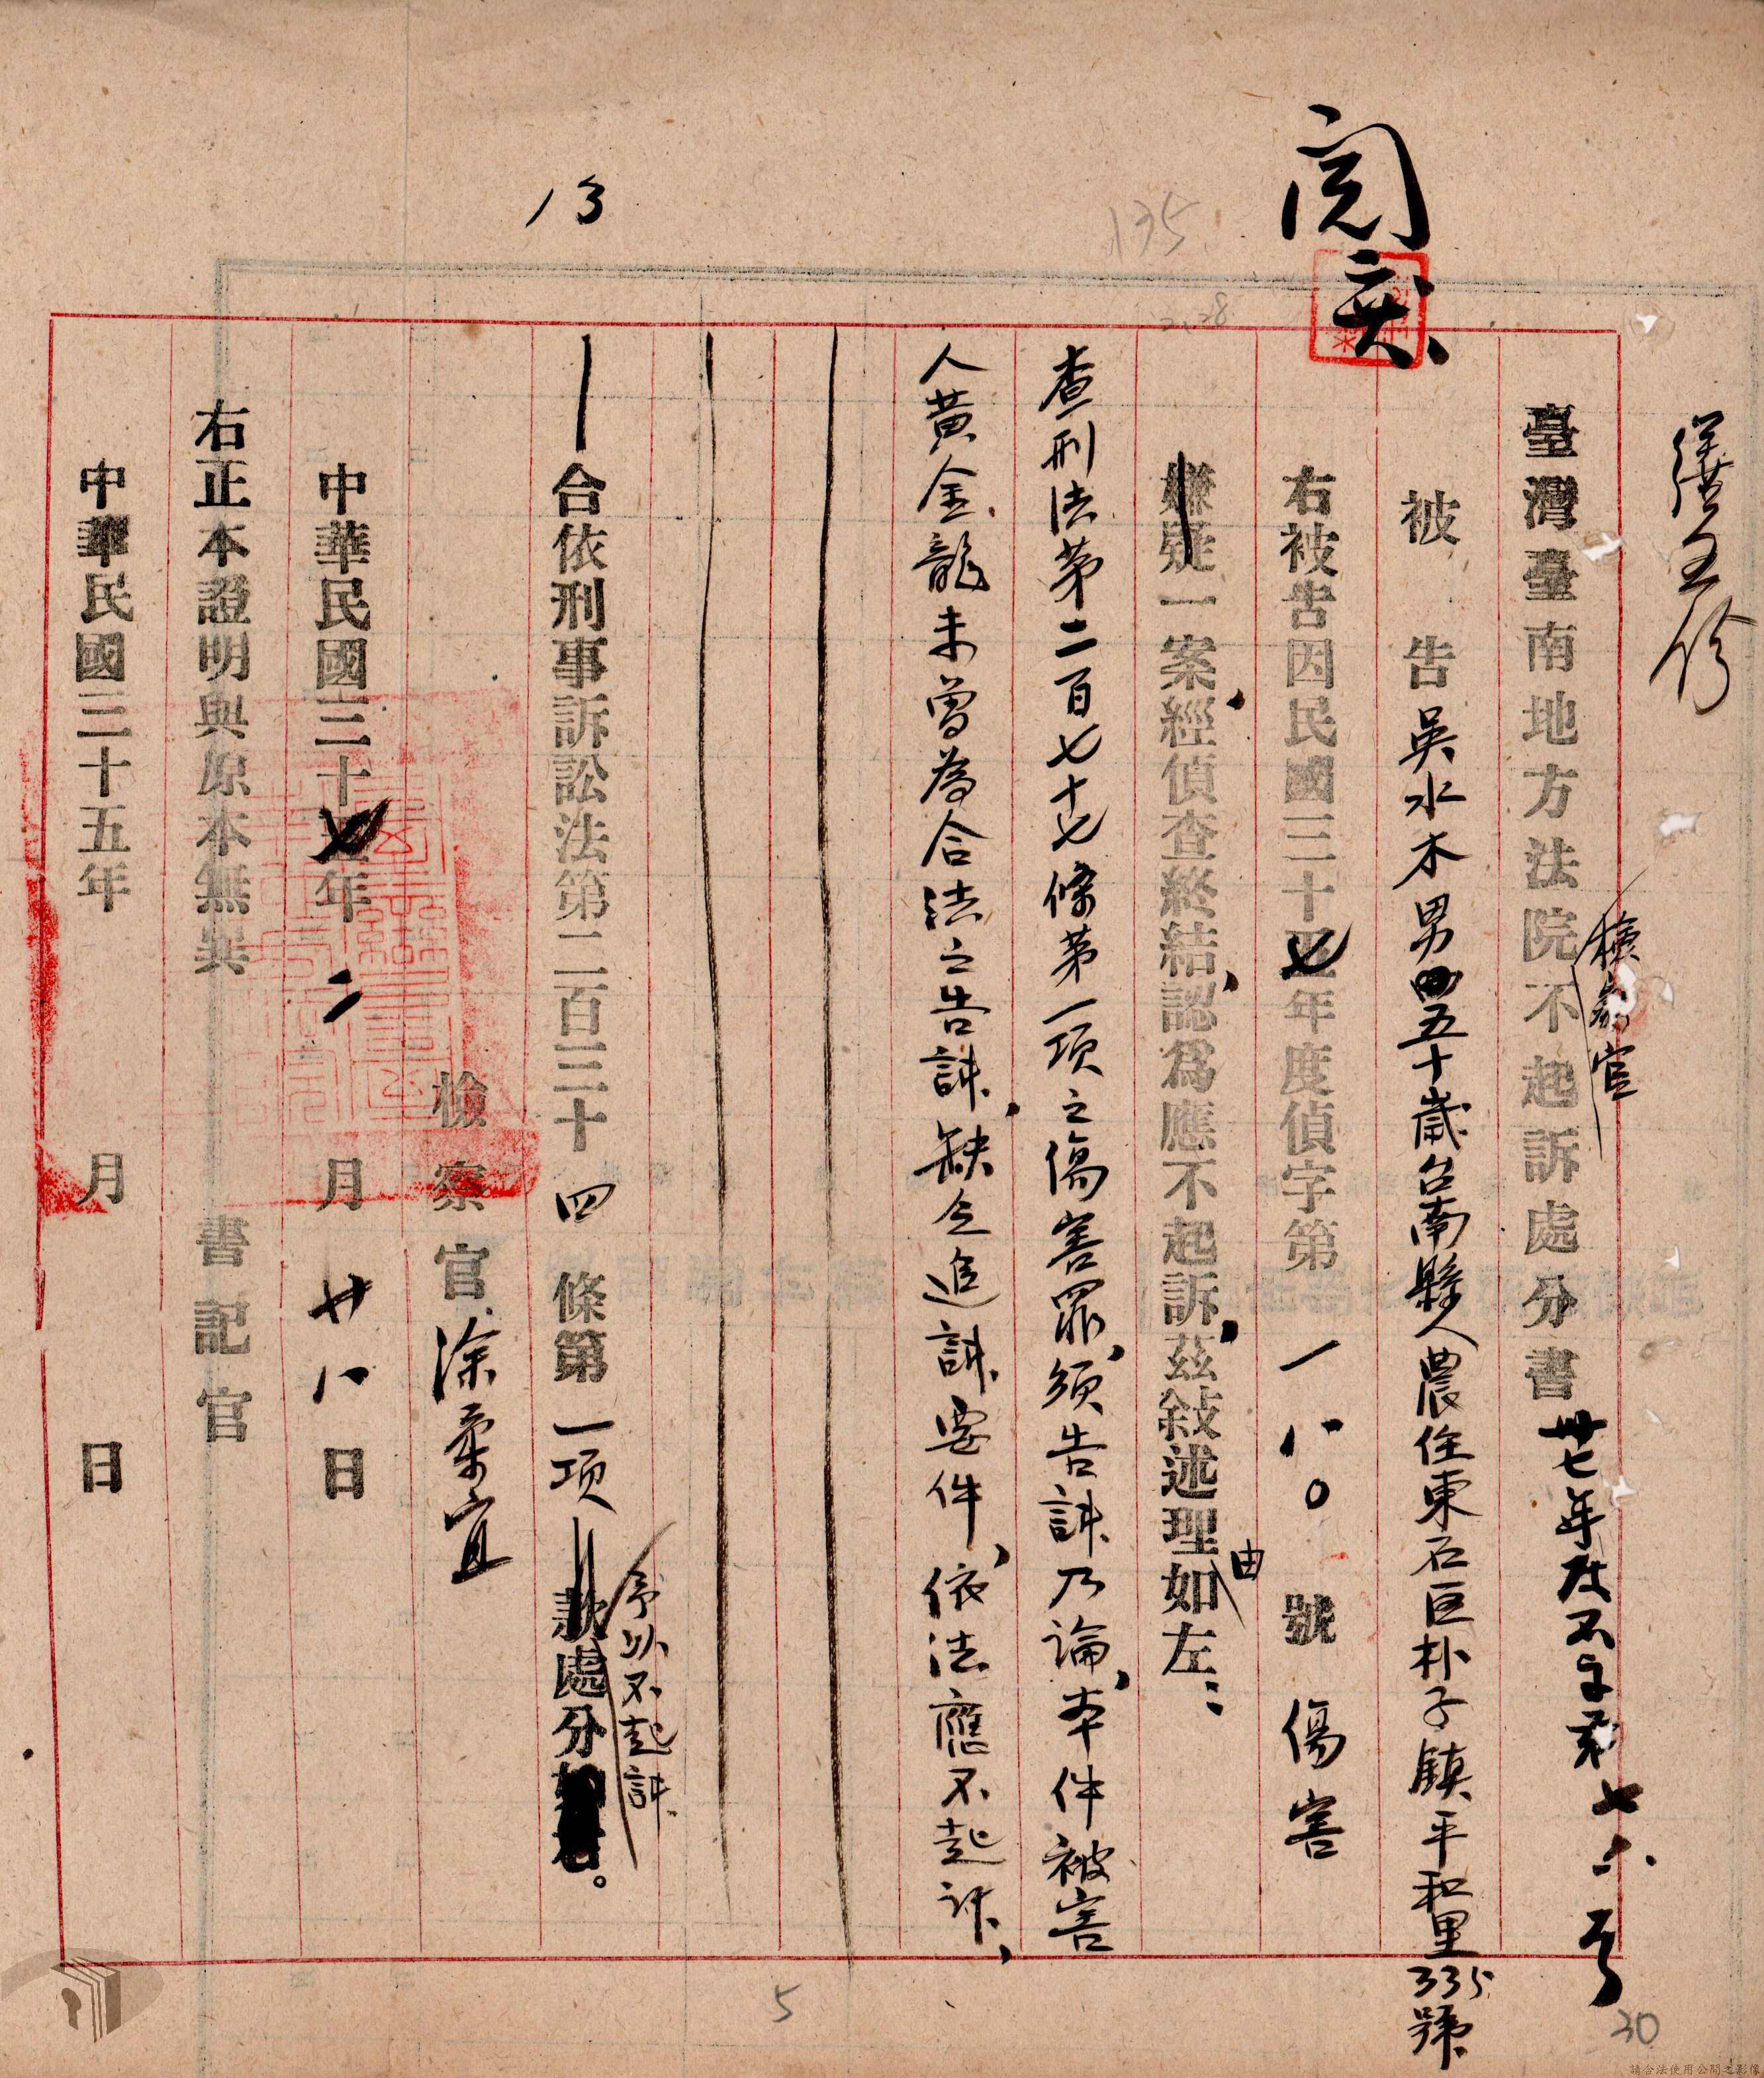 繕五份
臺灣臺南地方法院檢察官不起訴處分書卅七年度不字第七六號
被告吳水木男五十歲台南縣人農住東石區朴子鎮平和里335號
右被告因民國三十七年度偵字第一八〇號傷害
一案經偵查終結、認爲應不起訴、茲敍述理由如左：
查刑法第二百七十七條第一項之傷害罪、須告訴乃論、本件被害
人黃金龍未曾為合法之告訴、缺乏追訴要件、依法應不起訴、
合依刑事訴訟法第二百三十四條第一項予以不起訴處分。
檢察官涂秉宜
中華民國三十七年二月廿八日
右正本證明與原本無異
書記官
中華民國三十五年 月 日
閱
13
135
2.28
5
30
請合法使用公開之影像